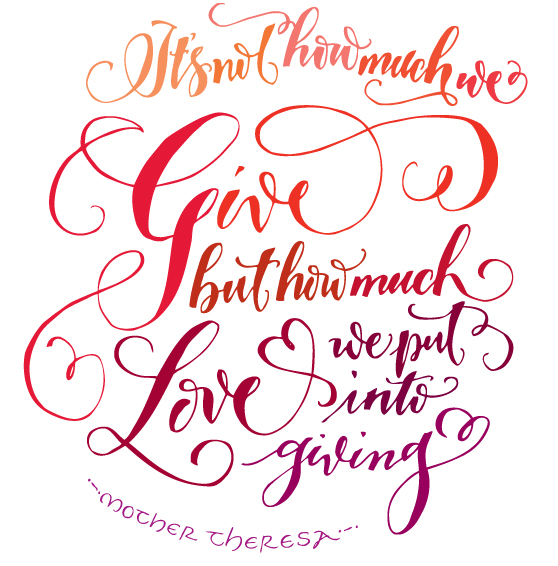 It's not how much we
Give
but how much
Love we put
into
giving
MOTHER THERESA